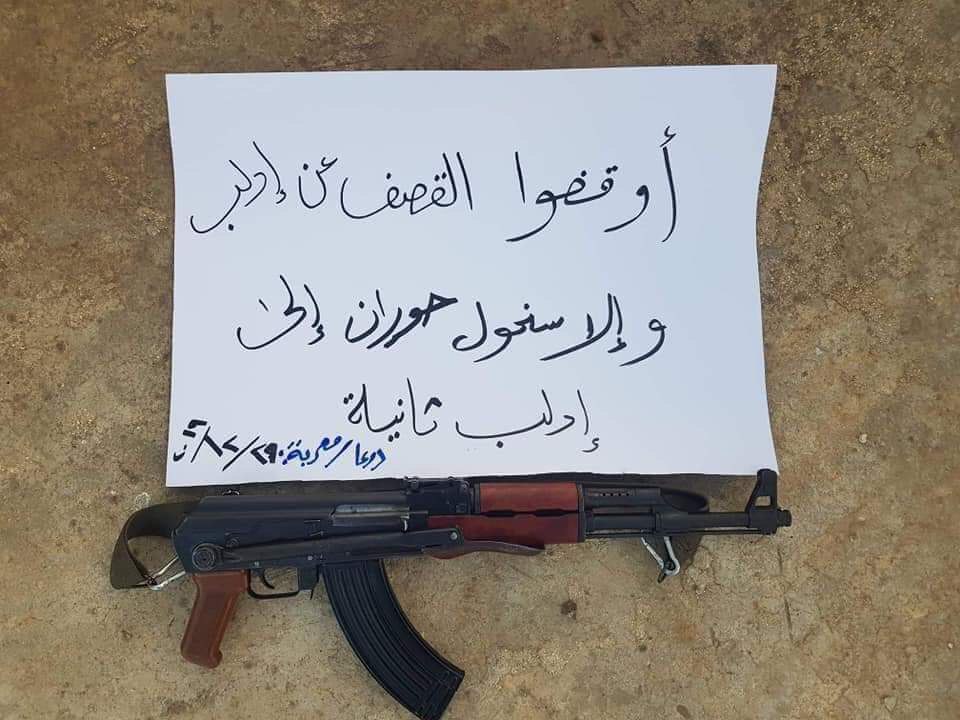 أوقفوا القصف عن إدلب
وإلا سنحول حوران إلى
إدلب ثانية
درعا/معربة: ٢٩/١٢/